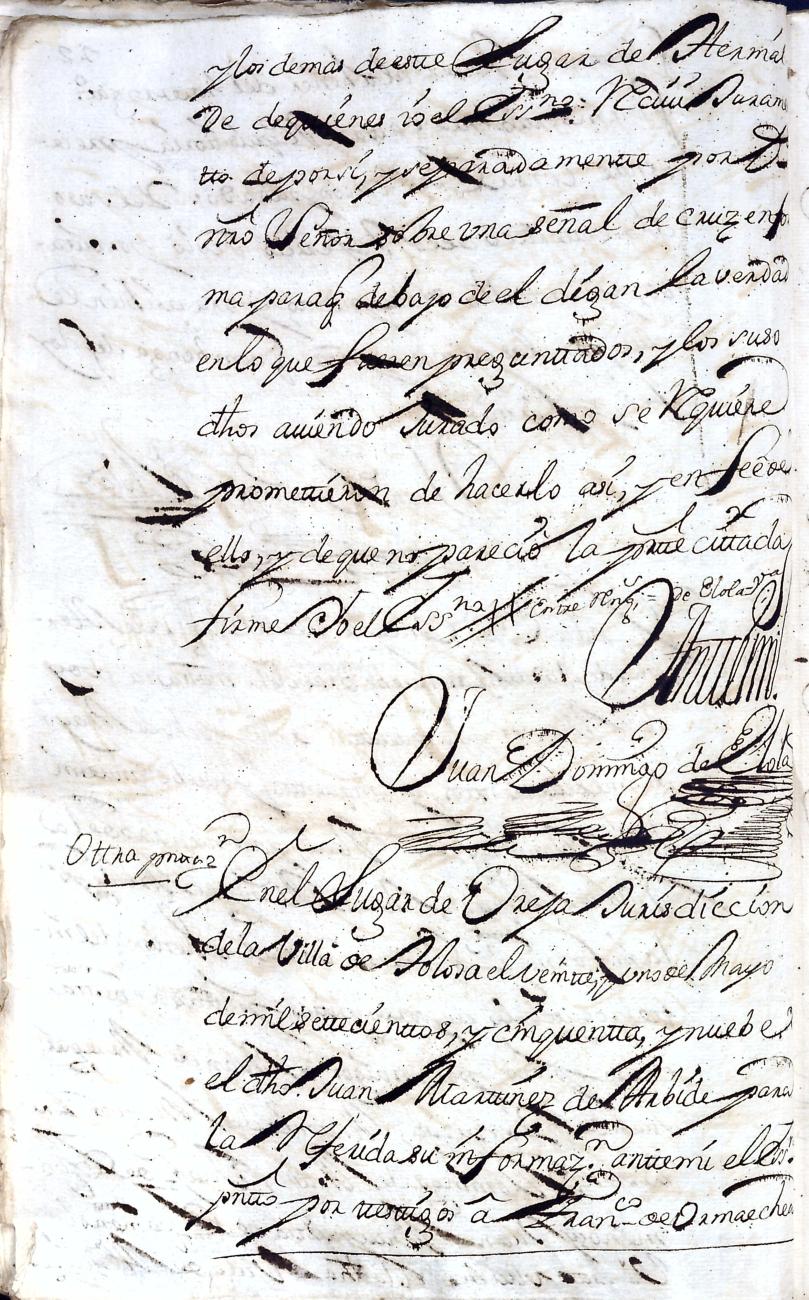 y los demas de estte Lugar de Hernial
De de quienes io el Ess.no Reciui Juram
tto de por sí, y separadamentte por D.
nrō Señor sobre vna señal de cruz en fo
ma para q̃ debajo de el digan la verdad
en lo que fueren preguntтados, y los suso
dhos auiendo Jurado como se Requiere
promettieron de hacerlo así, y en feē de
ello, y de que no pareciō la partte cittada
firme Yo el Ess.no Enttre Rens. = de Elola
Anttemi.
Juan Domingo de Elola
Ottra pntaz.n
En el Lugar de Oreja Jurisdiccion
de la Villa de Tolosa el veintte, y uno de Mayo
de mil settecienttos, y cinquentta, y nuebe
el dho. Juan Martinez de Arbide para
la Referida su informaz.n anttemi el Es.
pntto por testigos â Fran.co de Ormaechea